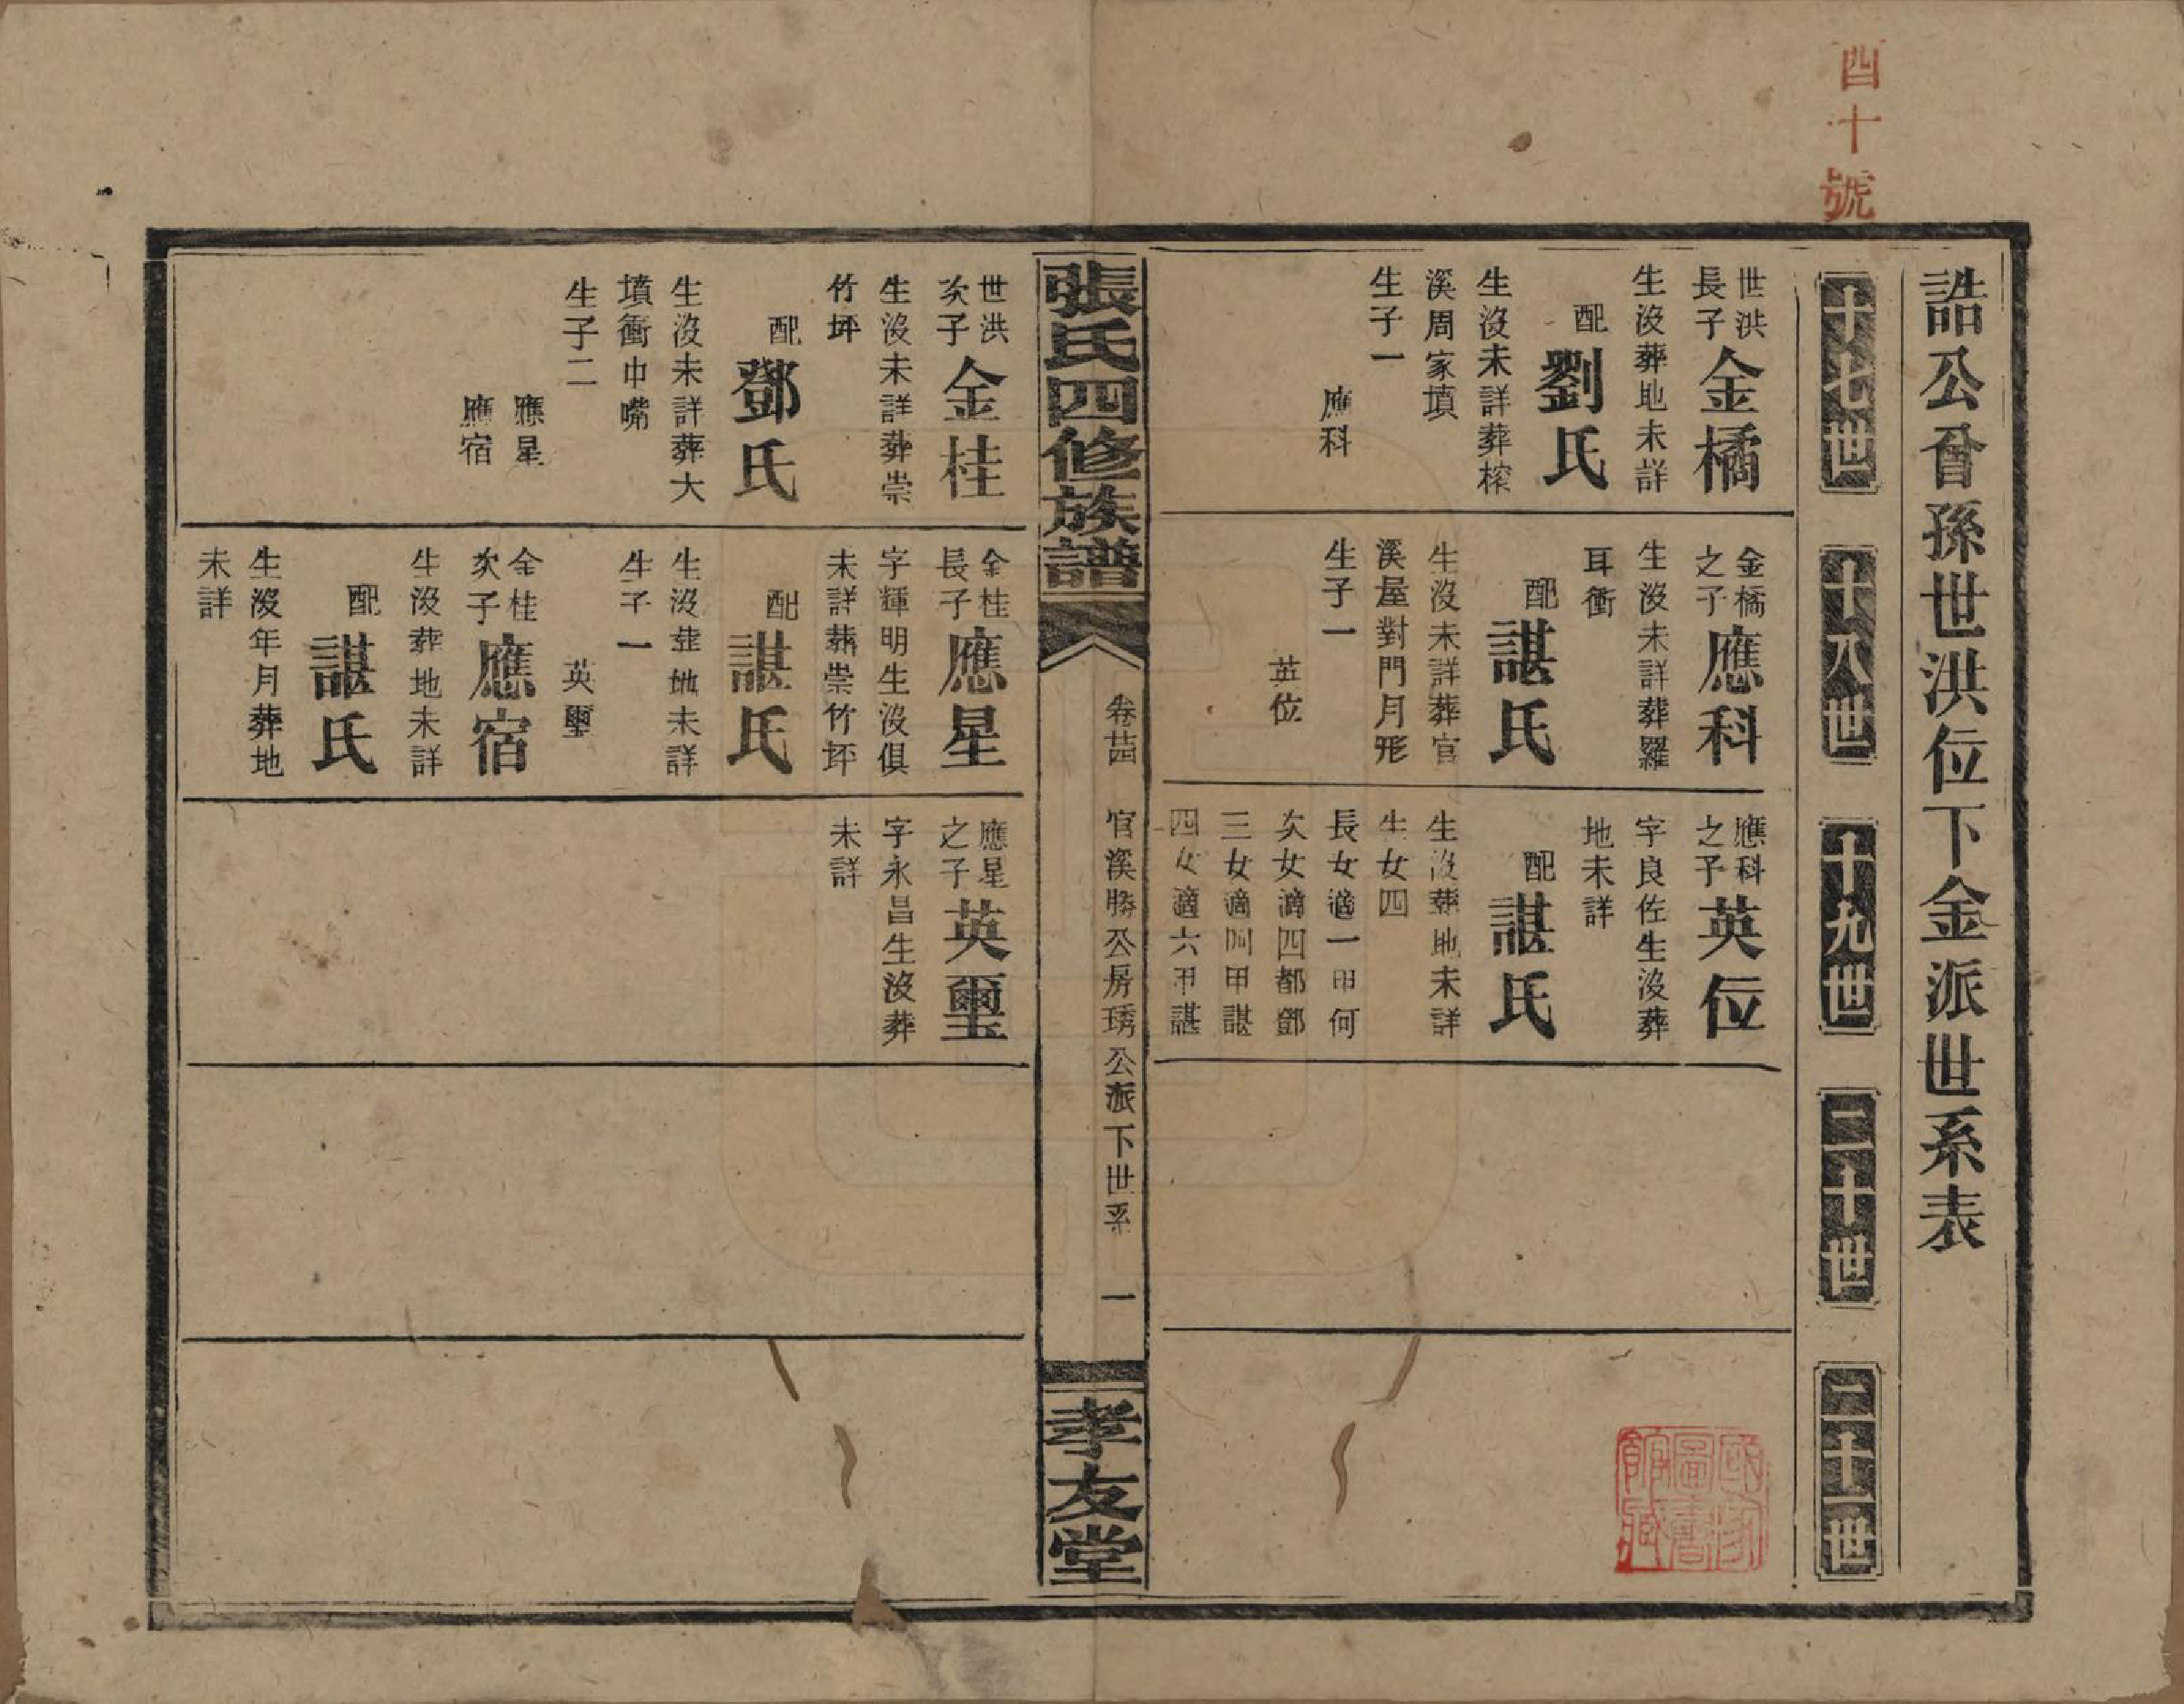 四十號
誥公曾孫世洪位下金派世系表
十七世
十八世
十九世
二十世
二十一世
世洪
長子
金橘
生沒葬地未詳
配
劉氏
生沒未詳葬樑
溪周家墳
生子一
應科
金橘
之子
應科
生沒未詳葬羅
耳衝
配
諶氏
生沒未詳葬官
溪屋對門月形
生子一
英位
應科
之子
英位
字良佐生沒葬
地未詳
配
諶氏
生沒葬地未詳
生女四
長女適一甲何
次女適四都鄧
三女適四甲諶
四女適六甲諶
國家圖書館藏
張氏四修族譜
卷廿四
官溪勝公房琇公派下世系
一
孝友堂
世洪
次子
金桂
生沒未詳葬崇
竹坪
配
鄧氏
生沒未詳葬大
墳衝中嘴
生子二
應星
應宿
金桂
長子
應星
字輝明生沒俱
未詳葬崇竹坪
配
諶氏
生沒葬地未詳
生子一
英璽
金桂
次子
應宿
生沒葬地未詳
配
諶氏
生沒年月葬地
未詳
應星
之子
英璽
字永昌生沒葬
未詳